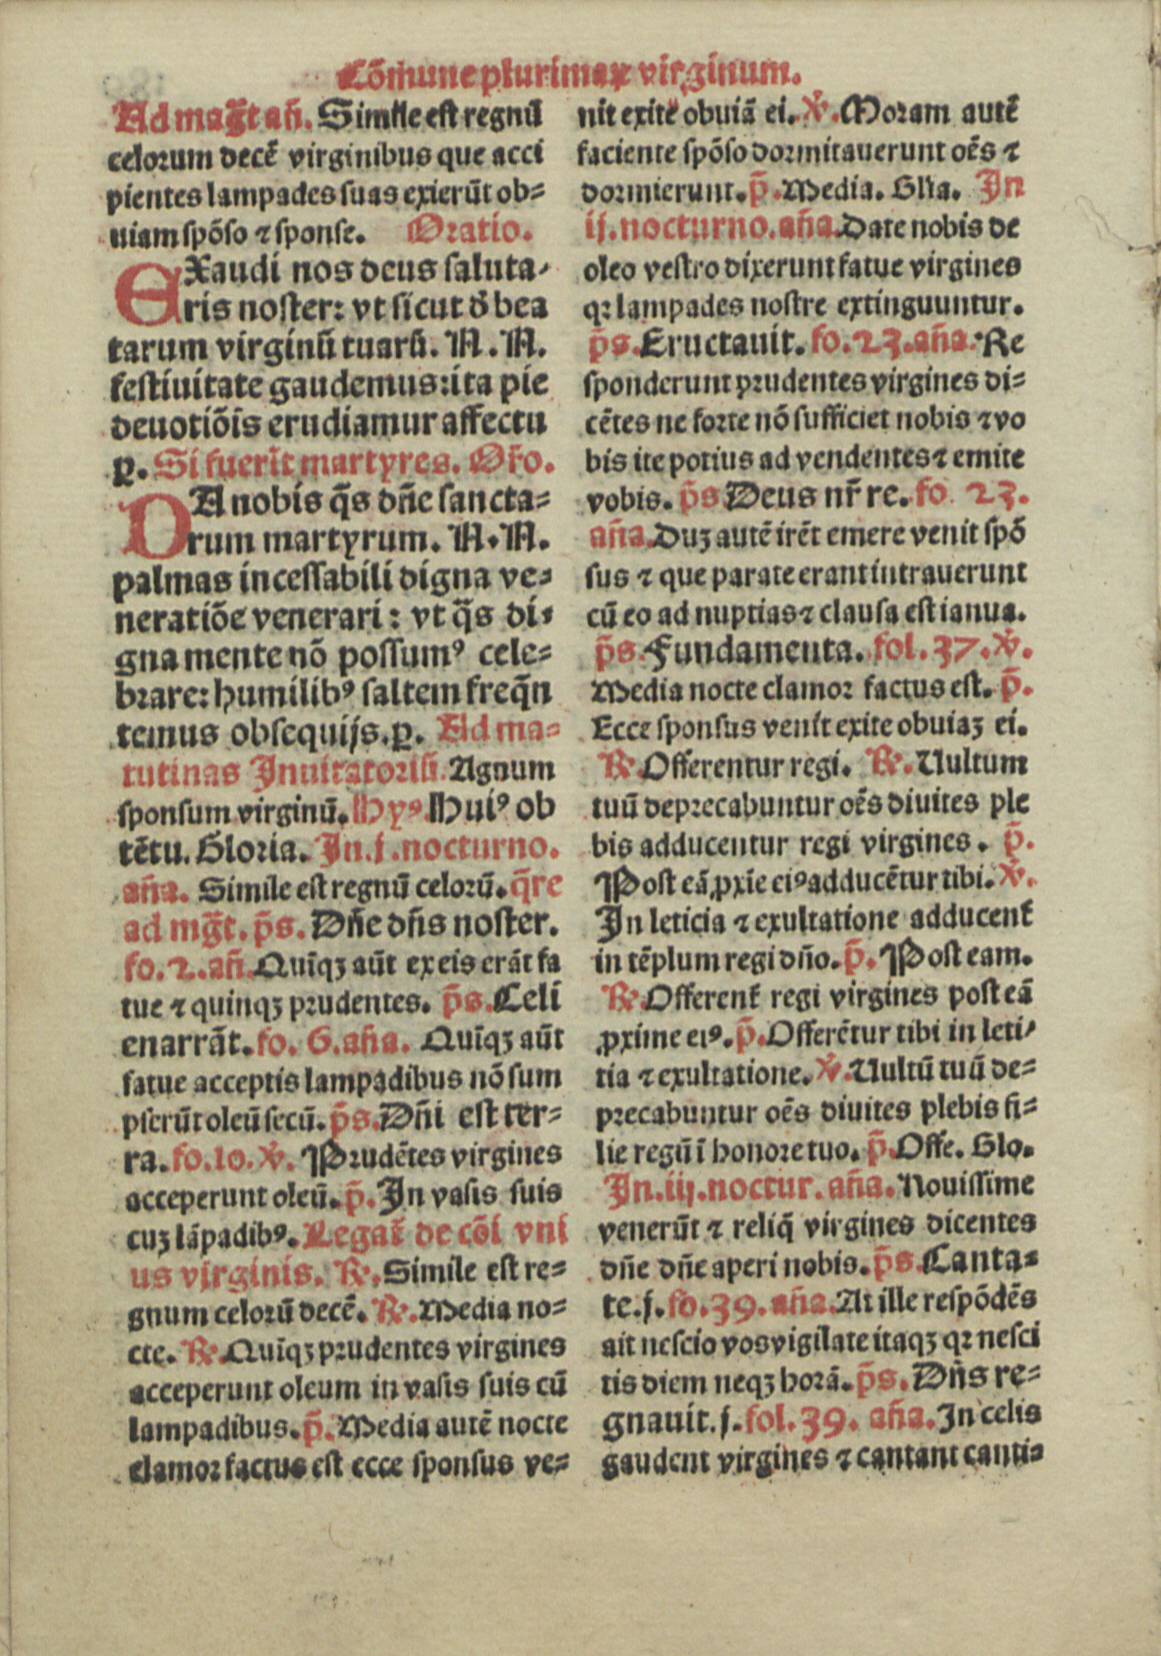 Cōmune plurimaꝝ virginum.
Ad mag̃t añ. Simile est regnū
celorum decē virginibus que acci
pientes lampades suas exierūt ob-
uiam spōso ⁊ sponse. Oratio.
EXaudi nos deus saluta-
ris noster: vt sicut ď bea
tarum virginū tuarū. N. N.
festiuitate gaudemus: ita pie
deuotiōis erudiamur affectu
ꝑ. Si fuerit martyres. Oŕo.
DA nobis q̄s dñe sancta-
rum martyrum. N. N.
palmas incessabili digna ve-
neratiōe venerari: vt q̄s di-
gna mente nō possumꝰ cele-
brare: humilibꝰ saltem freq̄n
temus obsequijs. ꝑ. Ad ma-
tutinas Inuitatoriū. Agnum
sponsum virginū. Hyꝰ. Huiꝰ ob
tētu. Gloria. In .j. nocturno.
aña. Simile est regnū celorū. q̄re
ad mg̃t. p̄s. Dñe dñs noster.
fo. 2. añ. Quīqꝫ aūt ex eis erāt fa
tue ⁊ quinqꝫ prudentes. p̄s. Celi
enarrāt. fo. 6. aña. Quīqꝫ aūt
fatue acceptis lampadibus nō sum
pserūt oleū secū. p̄s. Dñi est ter-
ra. fo. 10. ℣. Prudētes virgines
acceperunt oleū. p̄. In vasis suis
cuꝫ lāpadibꝰ. Legat̃ de cōi vni
us virginis. ℞. Simile est re-
gnum celorū decē. ℞. Media no-
cte. ℞. Quīqꝫ prudentes virgines
acceperunt oleum in vasis suis cū
lampadibus. p̄. Media autē nocte
clamor factus est ecce sponsus ve-
nit exite obuiā ei. ℣. Moram autē
faciente spōso dormitauerunt oēs ⁊
dormierunt. p̄. Media. Glīa. In
ij. nocturno. aña. Date nobis de
oleo vestro dixerunt fatue virgines
qꝛ lampades nostre extinguuntur.
p̄s. Eructauit. fo. 23. aña. Re
sponderunt prudentes virgines di-
cētes ne forte nō sufficiet nobis ⁊ vo
bis ite potius ad vendentes ⁊ emite
vobis. p̄s Deus nr̄ re. fo. 23.
aña. Duꝫ autē irēt emere venit spō
sus ⁊ que parate erant intrauerunt
cū eo ad nuptias ⁊ clausa est ianua.
p̄s. Fundamenta. fol. 37. ℣.
Media nocte clamor factus est. p̄.
Ecce sponsus venit exite obuiaꝫ ei.
℞. Offerentur regi. ℞. Uultum
tuū deprecabuntur oēs diuites ple
bis adducentur regi virgines. p̄.
Post eā ꝓxīe eiꝰ adducētur tibi. ℣.
In leticia ⁊ exultatione adducent̃
in tēplum regi dño. p̄. Post eam.
℞. Offerent̃ regi virgines post eā
ꝓxime eiꝰ. p̄. Offerētur tibi in leti-
tia ⁊ exultatione. ℣. Uultū tuū de-
precabuntur oēs diuites plebis fi-
lie regū ī honore tuo. p̄. Offe. Glo.
In .iij. noctur. aña. Nouissime
venerūt ⁊ reliq̄ virgines dicentes
dñe dñe aperi nobis. p̄s. Canta-
te. j. fo. 39. aña. At ille respōdēs
ait nescio vos vigilate itaqꝫ qꝛ nesci
tis diem neqꝫ horā. p̄s. Dñs re-
gnauit. j. fol. 39. aña. In celis
gaudent virgines ⁊ cantant canti-